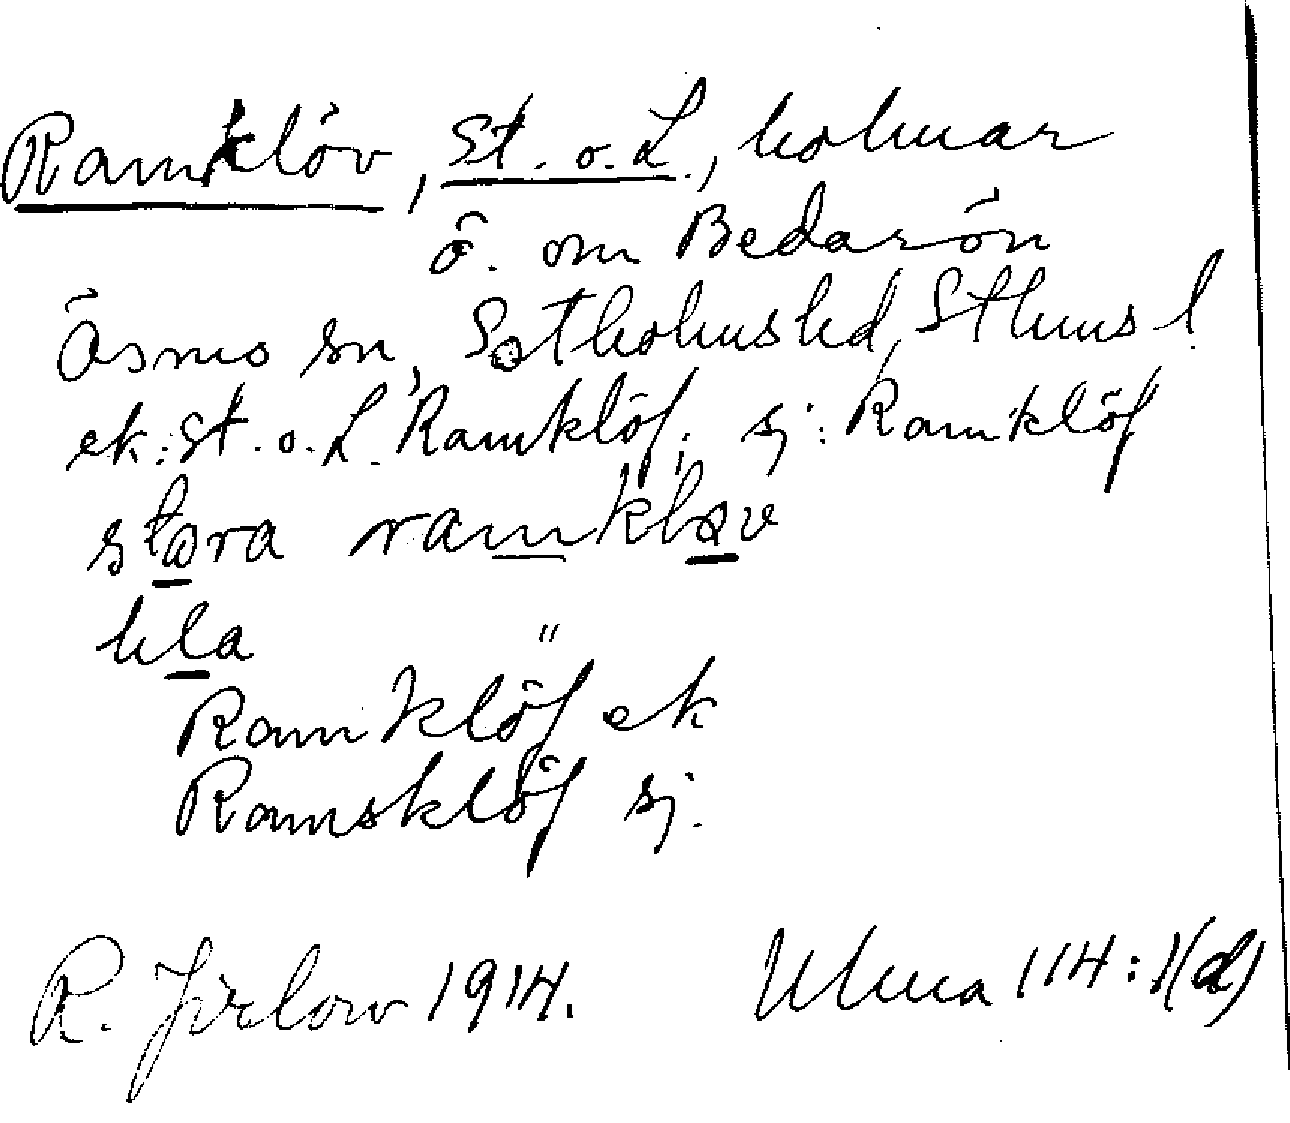 Ramklöv, St. o. L., holmar
ö. om Bedarön
Ösmo sn, Sotholms hd, Sthms l.
ek: St. o. L. Ramklöf; sj: Ramklöf
stora ramkløv
lilla "
Ramklöf ek
Ramsklöf sj.
R. Jirlow 1914. Uluna 114:1(d)